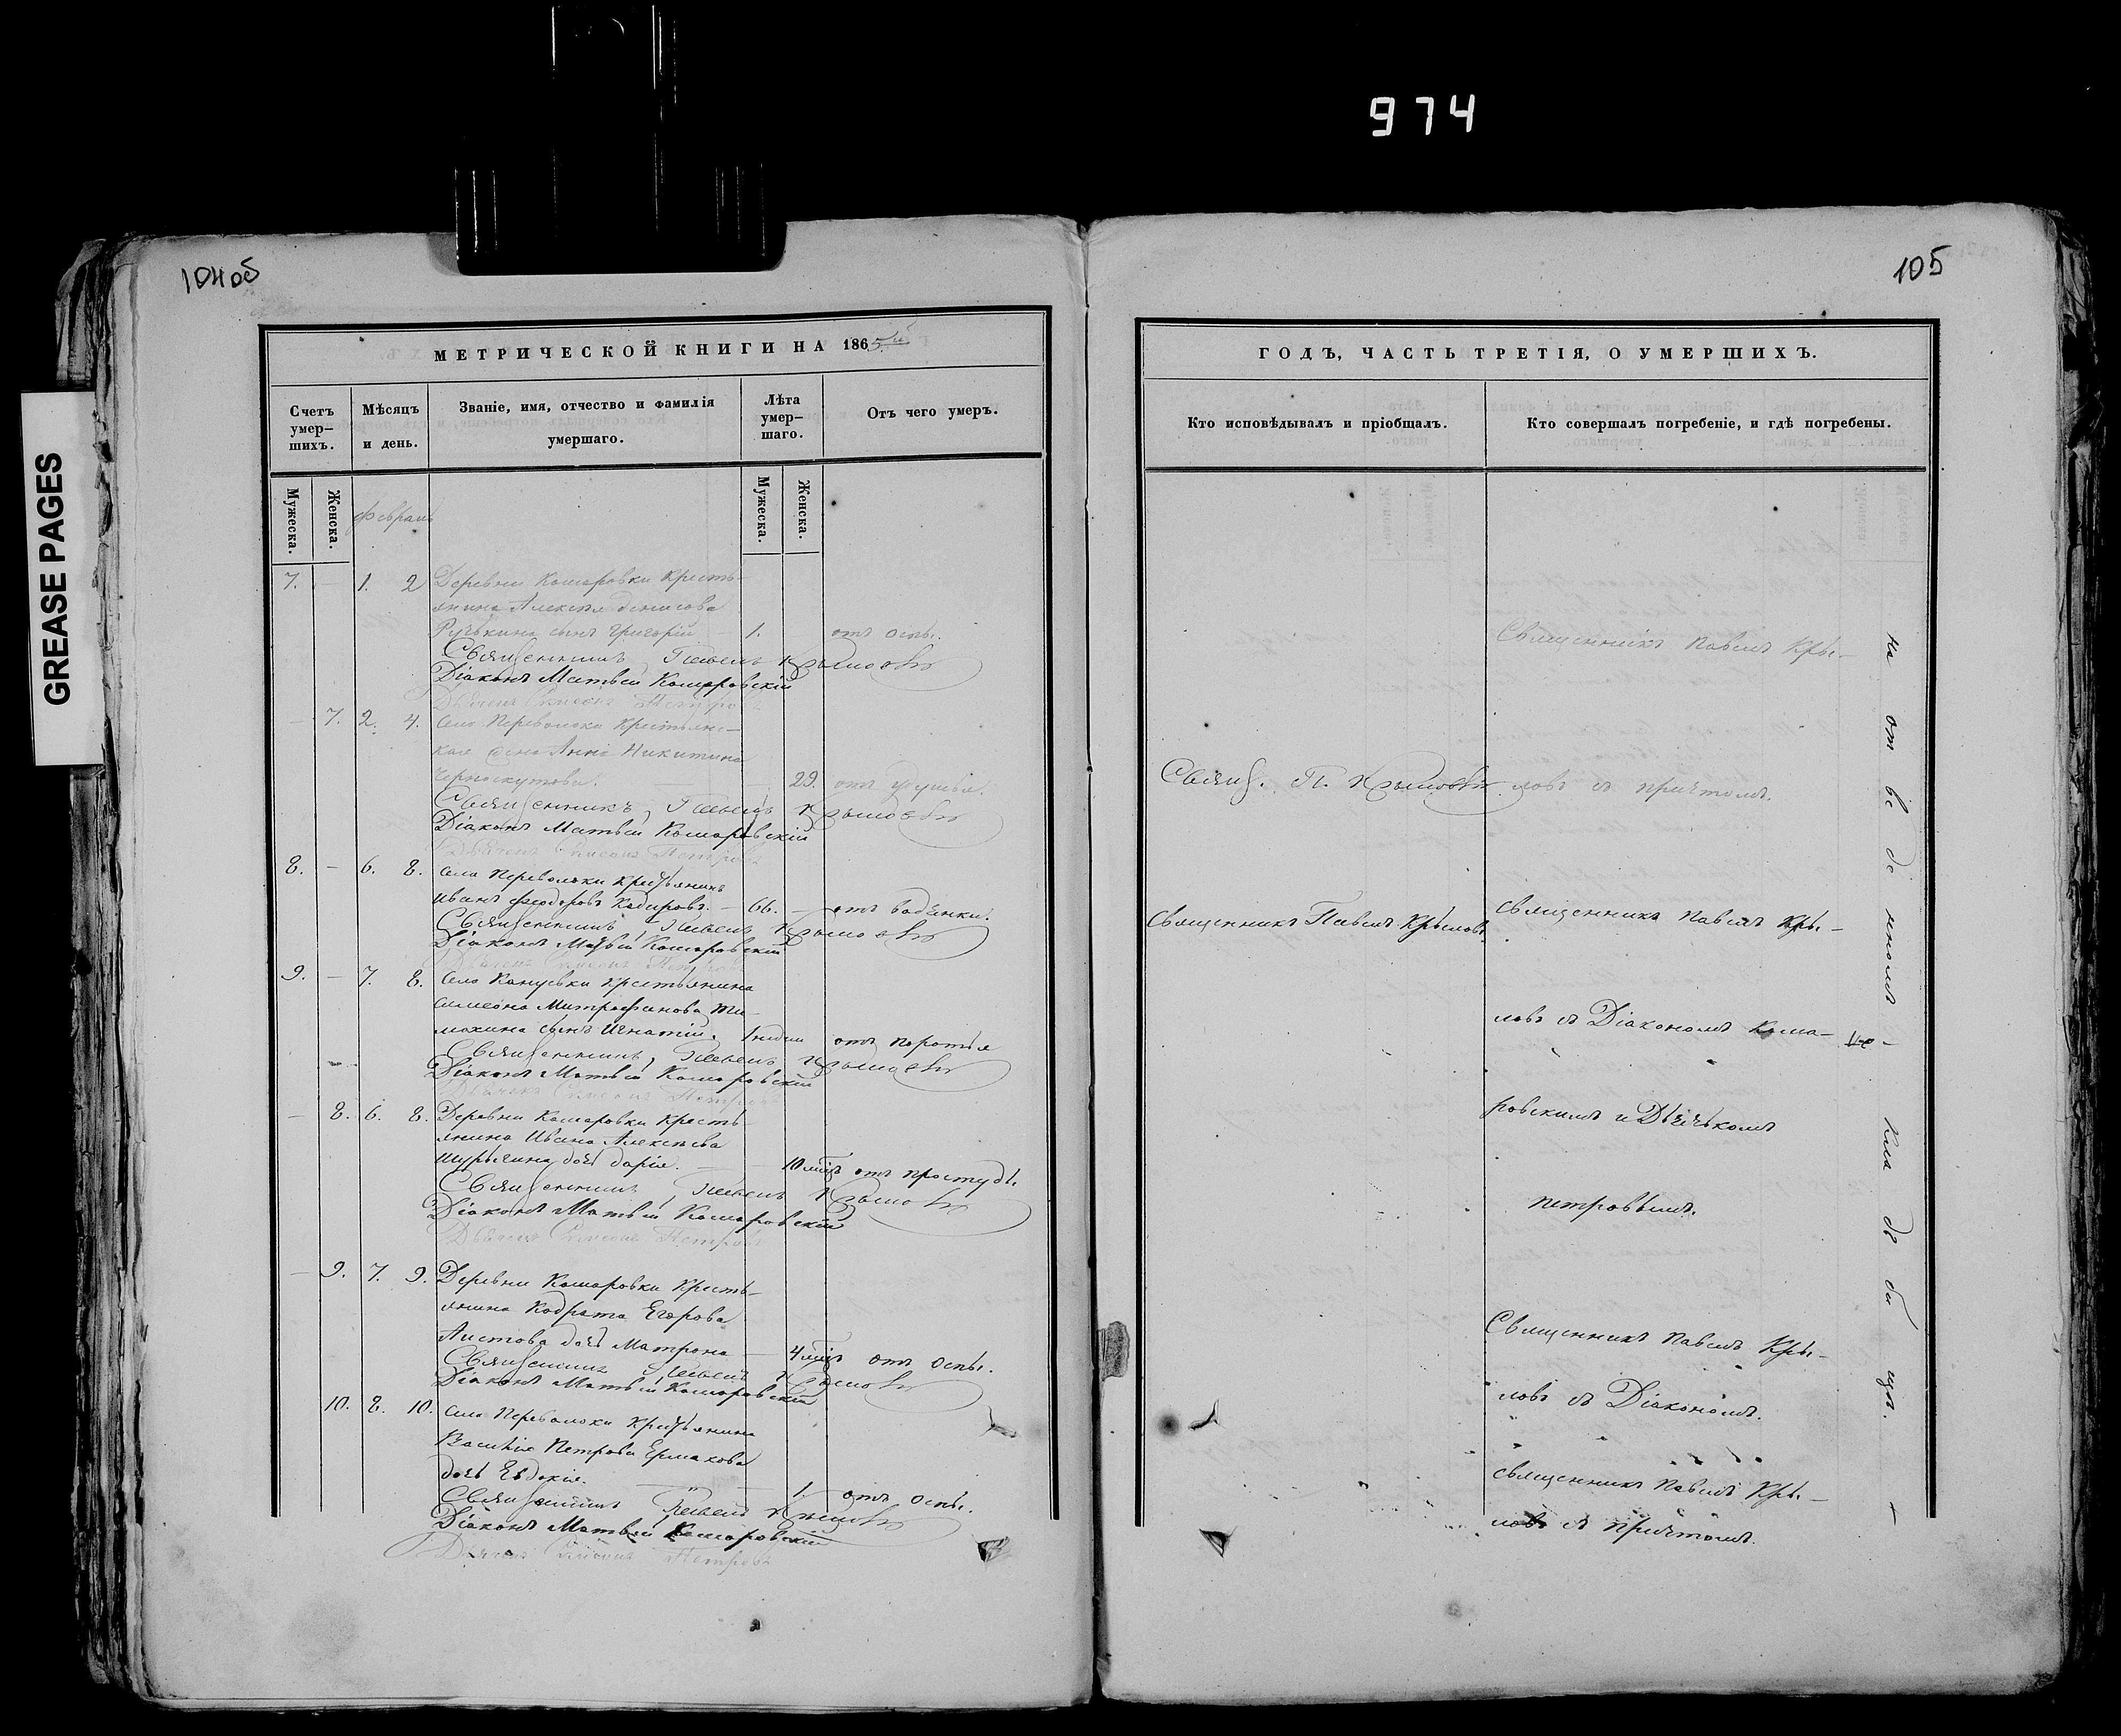 974
GREASE PAGES
104об
МЕТРИЧЕСКОЙ КНИГИ НА 1865й
Счетъ умер-
шихъ.
Мѣсяцъ
и день.
Званіе, имя, отчество и фамилія
умершаго.
Лѣта
умер-
шаго.
Отъ чего умеръ.
Мужеска.
Женска.
Февраль
Мужеска.
Женска.
7. – 1. 2 Деревни Комаровки Кресть-
янина Алексѣя Денисова
Ручькина сынъ Григорій – 1. отъ оспы.
Священникъ Павелъ Крыловъ
Діаконъ Матвѣй Комаровскій
Дьячекъ Симеонъ Петровъ
– 7. 2. 4. Села Переволоки Крестьянс-
кая жена Анна Никитина
Черноскутова. 29. отъ
Священникъ Павелъ Крыловъ
Діаконъ Матвѣй Комаровскій
Дьячекъ Симеонъ Петровъ
8. – 6. 8. Села Переволоки Крестьянинъ
Иванъ Феодоровъ Кадировъ. – 66. – отъ водянки.
Священникъ Павелъ Крыловъ
Діаконъ Матвѣй Комаровскій
Дьячекъ Симеонъ Петровъ
9. – 7. 8. Села Кануевки Крестьянина
Симеона Митрофанова Ти-
махина сынъ Игнатій. 1 недѣли отъ
Священникъ Павелъ Крыловъ
Діаконъ Матвѣй Комаровскій
Дьячекъ Симеонъ Петровъ
– 8. 6. 8. Деревни Комаровки Кресть-
янина Ивана Алексѣева
Шурыгина дочь Дарія. 10 мѣц отъ простуды.
Священникъ Павелъ Крыловъ
Діаконъ Матвѣй Комаровскій
Дьячекъ Симеонъ Петровъ
– 9. 7. 9. Деревни Комаровки Кресть-
янина Кодрата Егорова
Аистова дочь Матрона – 4 мѣц отъ оспы.
Священникъ Павелъ Крыловъ
Діаконъ Матвѣй Комаровскій
10. 8. 10. Села Переволоки Крестьянина
Василія Петрова Ермакова
дочь Евдокія. 1. отъ оспы.
Священникъ Павелъ Крыловъ
Діаконъ Матвѣй Комаровскій
Дьячекъ Симеонъ Петровъ
105
ГОДЪ, ЧАСТЬ ТРЕТІЯ, О УМЕРШИХЪ.
Кто исповѣдывалъ и пріобщалъ.
Кто совершалъ погребеніе, и гдѣ погребены.
Священникъ Павелъ Кры-
Свящ. П. Крыловъ
ловъ съ причтомъ.
Священникъ Павелъ Крыловъ.
Священникъ Павелъ Кры-
ловъ съ Діакономъ Кома-
ровскимъ и Дьячькомъ
Петровымъ.
Священникъ Павелъ Кры-
ловъ съ Діакономъ.
Священникъ Павелъ Кры-
ловъ съ причтомъ.
на от ве де нномъ
кла дб би щѣ.